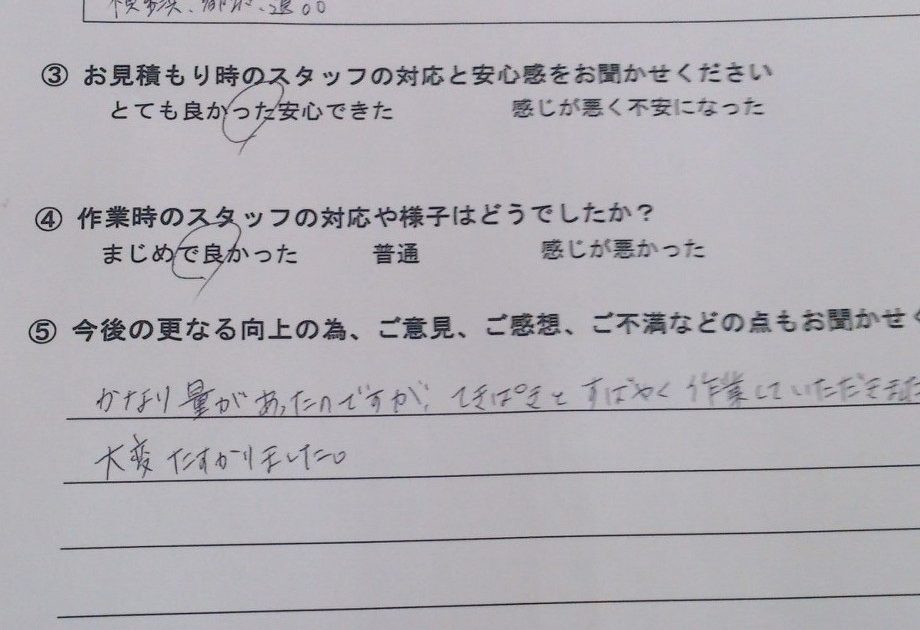 ③ お見積もり時のスタッフの対応と安心感をお聞かせください
とても良かった安心できた 感じが悪く不安になった
④ 作業時のスタッフの対応や様子はどうでしたか?
まじめで良かった 普通 感じが悪かった
⑤ 今後の更なる向上の為、ご意見、ご感想、ご不満などの点もお聞かせく
かなり量があったのですが、てきぱきとすばやく作業していただきました
大変たすかりました。